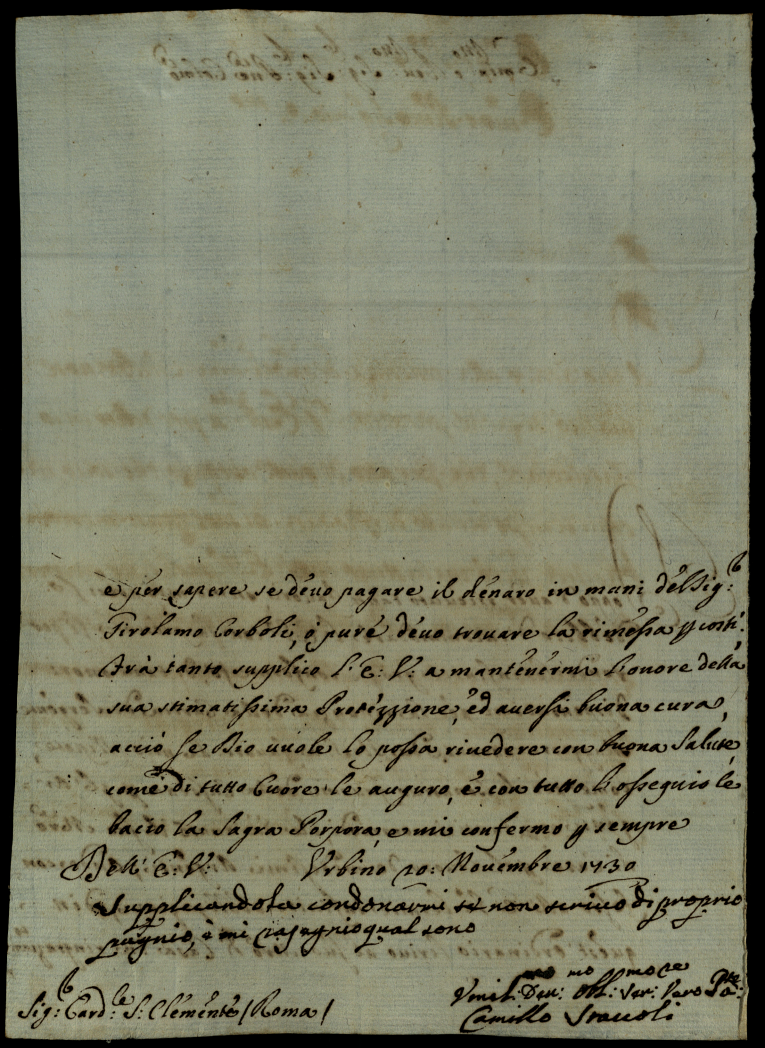 e per sapere se devo pagare il denaro in mani del Sig:r
Girolamo Corboli, o pure devo trovare la rimessa p costì.
Frà tanto supplico l'E: V: a mantenermi l'onore della
sua stimatissima Protezzione, ed aversi buona cura,
acciò se Dio vuole lo possa rivedere con buona Salute,
come di tutto Cuore le auguro, e con tutto l'ossequio le
bacio la Sagra Porpora, e mi confermo p sempre
Dell' E: V: Urbino 20: Novembre 1730
Supplicandola condonarmi se non scrivo di proprio
pugnio, e mi rasegnio qual sono
Umil:mo Dev:mo Obl:mo Ser:re Vero
Sig:r Card:le S: Clemente (Roma) Camillo Staccoli